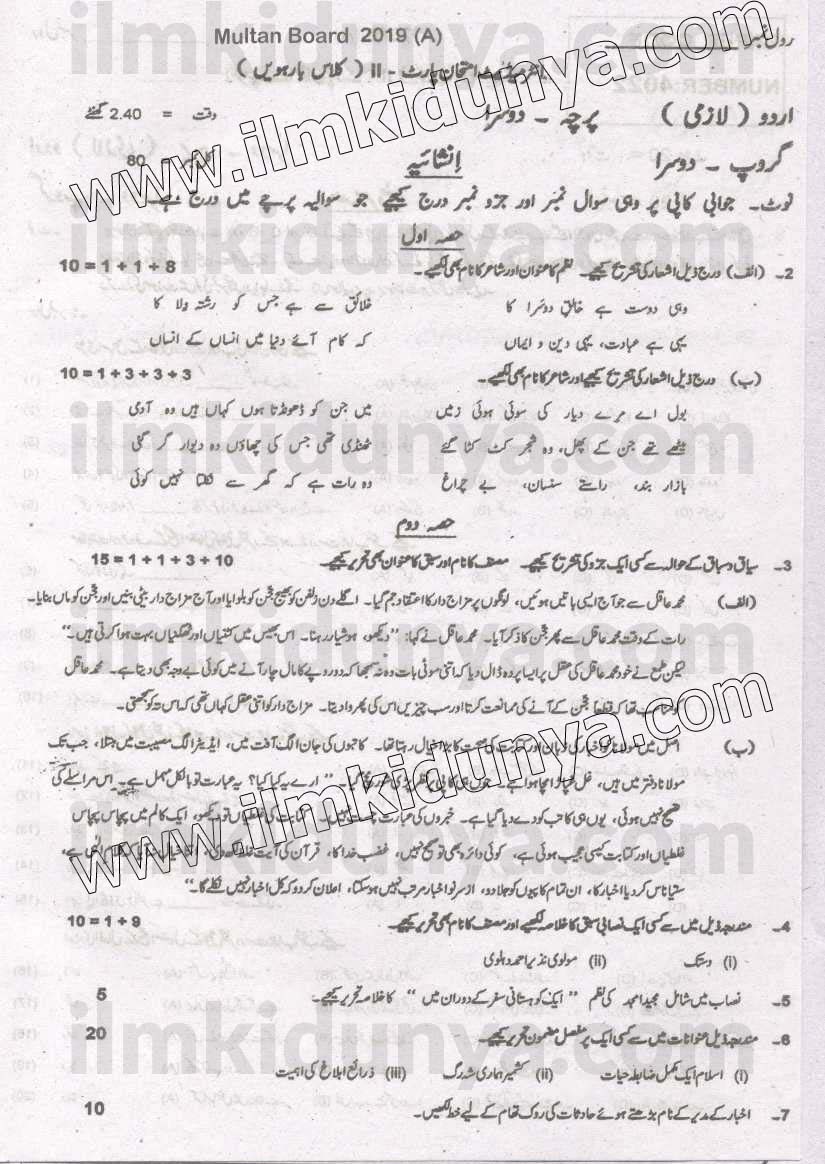 Multan Board 2019 (A)
رول نمبر
انٹرمیڈیٹ امتحان پارٹ - II ( کلاس بارہویں )
اردو ( لازمی ) پرچہ - دوسرا وقت = 2.40 گھنٹے
گروپ - دوسرا اِنشائیہ کل نمبر = 80
نوٹ۔ جوابی کاپی پر وہی سوال نمبر اور جزو نمبر درج کیجیے جو سوالیہ پرچے میں درج ہے۔
حصہ اول
2۔ (الف) درج ذیل اشعار کی تشریح کیجیے۔ نظم کا عنوان اور شاعر کا نام بھی لکھیے۔ 10 = 1 + 1 + 8
وہی دوست ہے خالقِ دوسَرا کا خلائق سے ہے جس کو رشتہ ولا کا
یہی ہے عبادت، یہی دین و ایماں کہ کام آئے دنیا میں انساں کے انساں
(ب) درج ذیل اشعار کی تشریح کیجیے اور شاعر کا نام بھی لکھیے۔ 10 = 1 + 3 + 3 + 3
بول اے مرے دیار کی سوئی ہوئی زمیں میں جن کو ڈھونڈتا ہوں کہاں ہیں وہ آدمی
میٹھے تھے جن کے پھل، وہ شجر کٹ کٹا گئے ٹھنڈی تھی جس کی چھاؤں وہ دیوار گر گئی
بازار بند، راستے سنسان، بے چراغ وہ رات ہے کہ گھر سے نکلتا نہیں کوئی
حصہ دوم
3۔ سیاق و سباق کے حوالہ سے کسی ایک جزو کی تشریح کیجیے۔ مصنف کا نام اور سبق کا عنوان بھی تحریر کیجیے۔ 15 = 1 + 1 + 3 + 10
(الف) محمد عاقل سے جو آج ایسی باتیں ہوئیں، لونگوں پر مزاج دار کا اعتقاد جم گیا۔ اگلے دن زلفن کو بھیج حجن کو بلوایا اور آج مزاج دار بیٹی بنیں اور حجن کو ماں بنایا۔
رات کے وقت محمد عاقل سے پھر حجن کا ذکر آیا۔ محمد عاقل نے کہا: "دیکھو، ہوشیار رہنا۔ اس بھیس میں کٹنیاں اور ٹھگنیاں بہت ہوا کرتی ہیں۔"
لیکن طمع نے خود محمد عاقل کی عقل پر ایسا پردہ ڈال دیا کہ اتنی موٹی بات وہ نہ سمجھا کہ دو روپے کا مال چار آنے میں کوئی بے وجہ بھی دیتا ہے۔ محمد عاقل
کو مناسب تھا کہ قطعاً حجن کے آنے کی ممانعت کرتا اور سب چیزیں اس کی پھروا دیتا۔ مزاج دار کو اتنی عقل کہاں تھی کہ اس تہ کو سمجھتی۔
(ب) اصل میں مولانا کو اخبار کی زبان اور کتابت کی صحت کا بڑا خیال رہتا تھا۔ کاتبوں کی جان الگ آفت میں، ایڈیٹر الگ مصیبت میں مبتلا، جب تک
مولانا دفتر میں ہیں، غل غپاڑا مچا ہوا ہے۔ جوں ہی کاپی پر نظر پڑی شور مچ گیا۔ "ارے یہ کیا کیا؟ یہ عبارت تو بالکل مہمل ہے۔ اس مراسلے کی
تصحیح نہیں ہوئی، یوں ہی کاتب کو دے دیا گیا ہے۔ خبروں کی عبارت چست نہیں۔ کتابت کی غلطیاں تو دیکھو، ایک کالم میں پچاس پچاس
غلطیاں اور کتابت کیسی عجیب ہوئی ہے، کوئی دائرہ بھی تو صحیح نہیں، غضب خدا کا، قرآن کی آیت غلط لکھ دی، ہے،
ستیا ناس کر دیا اخبار کا، ان تمام کاپیوں کو جلا دو، از سر نو اخبار مرتب نہیں ہو سکتا، اعلان کر دو کہ کل اخبار نہیں نکلے گا۔"
4۔ مندرجہ ذیل میں سے کسی ایک نصابی سبق کا خلاصہ لکھیے اور مصنف کا نام بھی تحریر کیجیے۔ 10 = 1 + 9
(i) دستک (ii) مولوی نذیر احمد دہلوی
5۔ نصاب میں شامل مجید امجد کی نظم "ایک کوہستانی سفر کے دوران میں" کا خلاصہ تحریر کیجیے۔ 5
6۔ مندرجہ ذیل عنوانات میں سے کسی ایک پر مفصل مضمون تحریر کیجیے۔ 20
(i) اسلام ایک مکمل ضابطہ حیات (ii) کشمیر ہماری شہ رگ (iii) ذرائع ابلاغ کی اہمیت
7۔ اخبار کے مدیر کے نام بڑھتے ہوئے حادثات کی روک تھام کے لیے خط لکھیں۔ 10
www.ilmkidunya.com
www.ilmkidunya.com
ilmkidunya.com
ilmkidunya.com
ilmkidunya.com
ilmkidunya.com
ilmkidunya.com